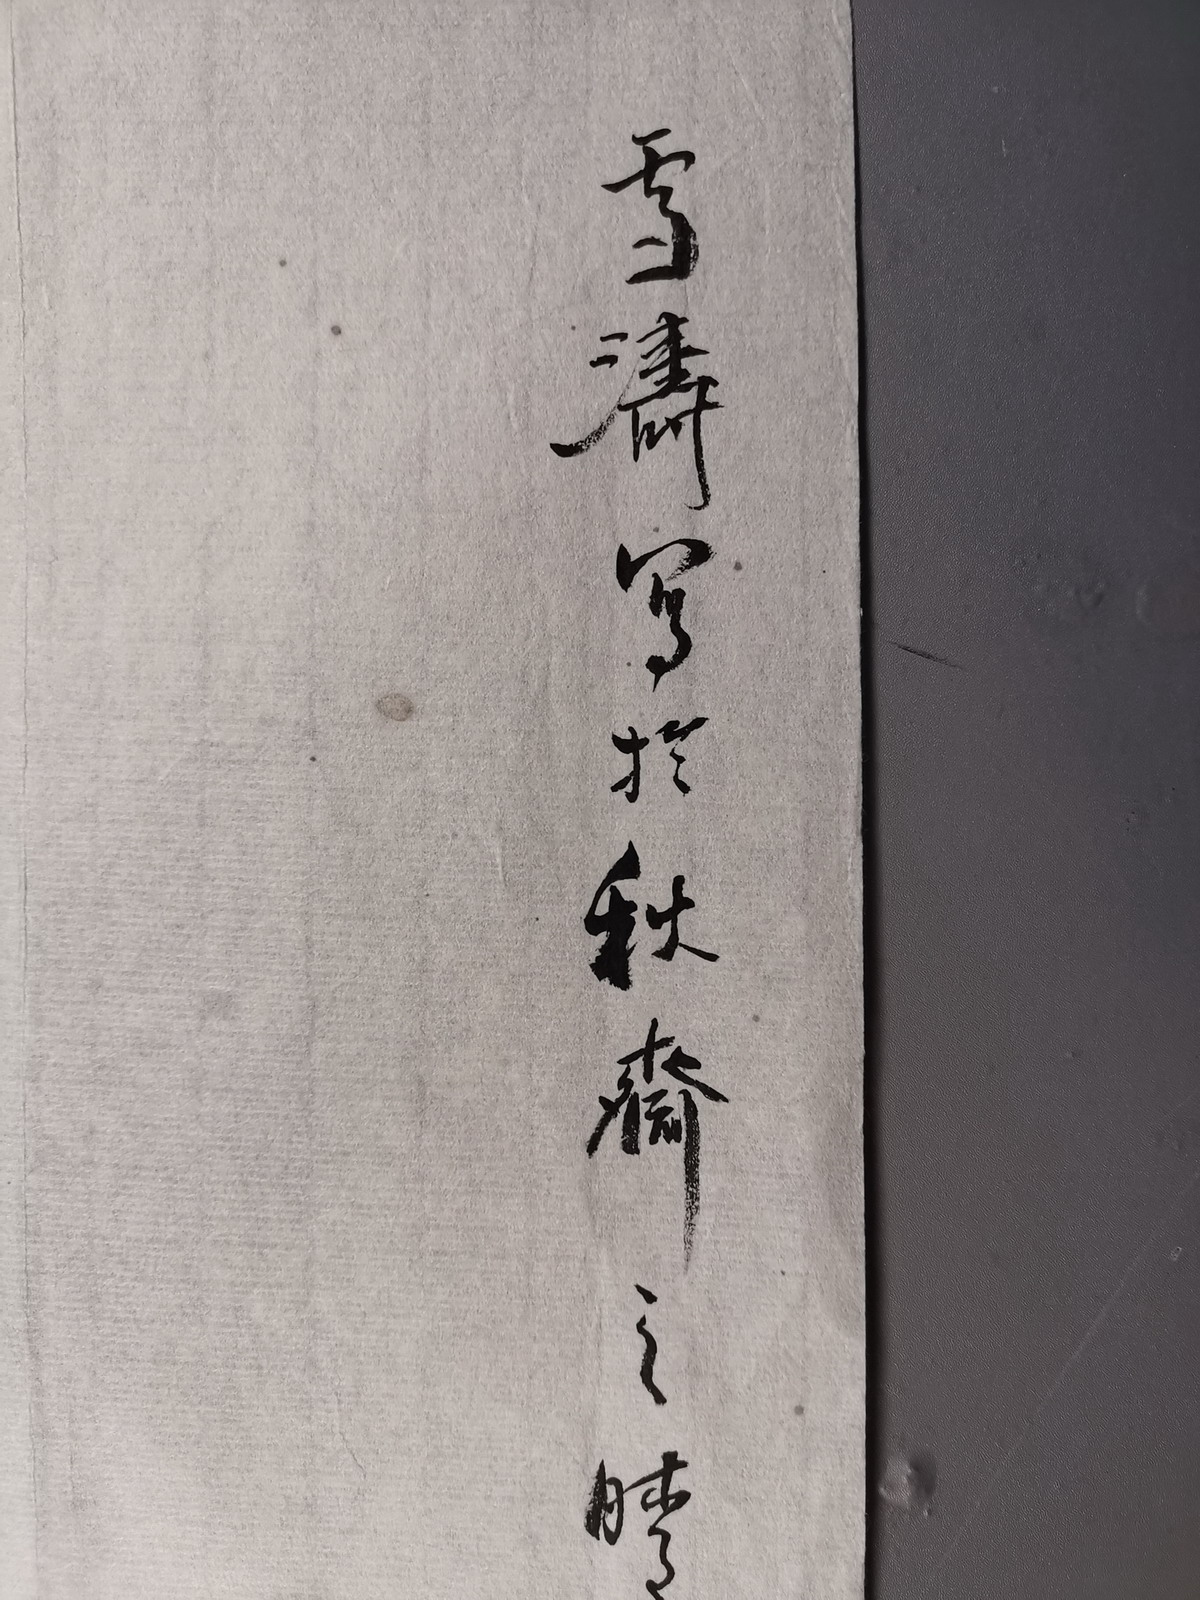 雪濤寫於秋齋之晴